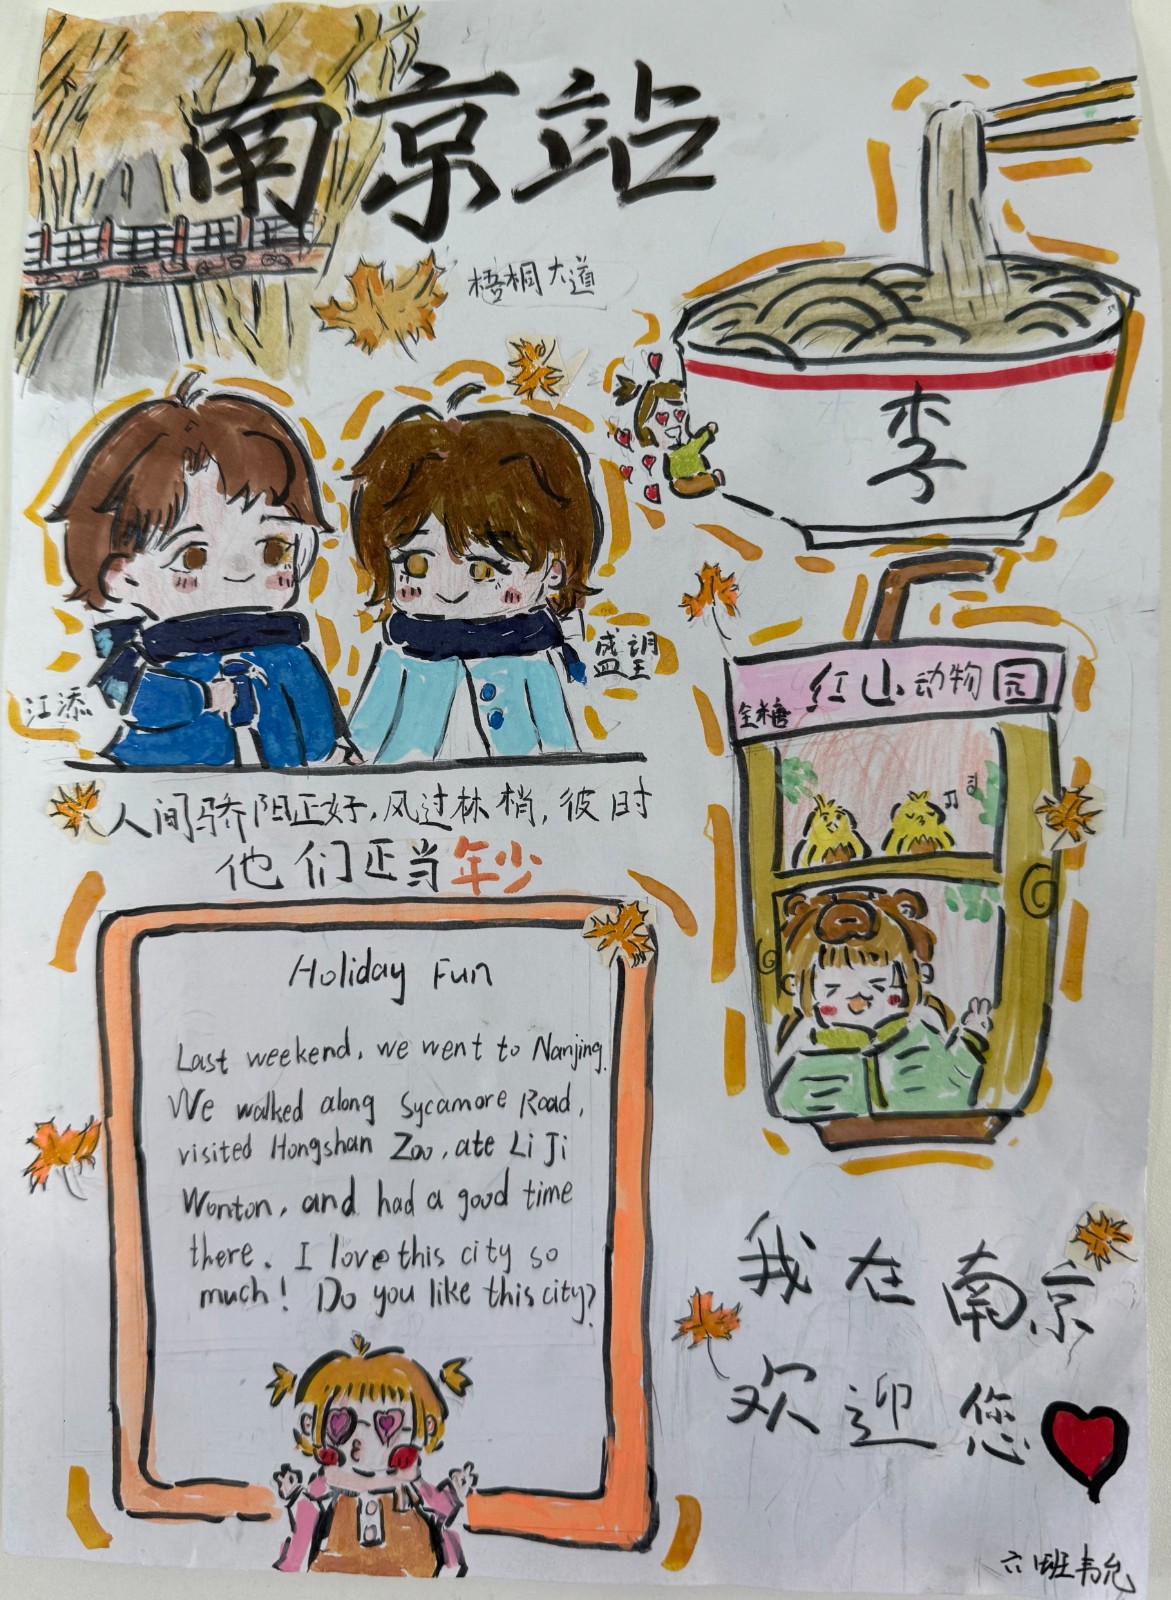 南京站
梧桐大道
李
江添
盛望
红山动物园
全糖
人间骄阳正好,风过林梢,彼时
他们正当年少
Holiday Fun
Last weekend, we went to Nanjing.
We walked along Sycamore Road,
visited Hongshan Zoo, ate Li Ji
Wonton, and had a good time
there. I love this city so
much! Do you like this city?
我在南京
欢迎您